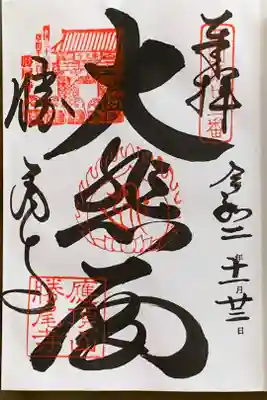 奉拝
令和二年十一月廿二日
大悲殿
勝尾寺
應頂山
勝尾寺